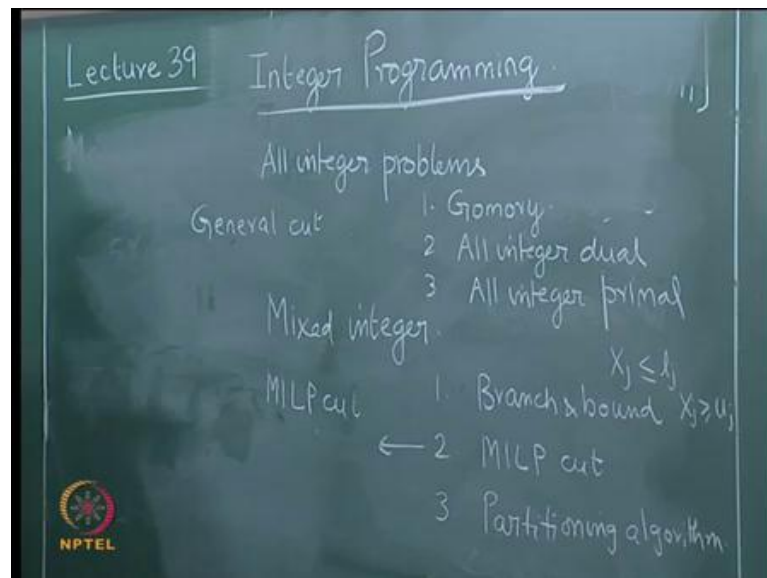 Lecture 39 Integer Programming.
All integer problems
General cut 1. Gomory
2 All integer dual
3 All integer primal
Mixed integer.
Xj ≤ lj
MILP cut 1. Branch & bound Xj ≥ uj
← 2 MILP cut
3 Partitioning algorithm
NPTEL